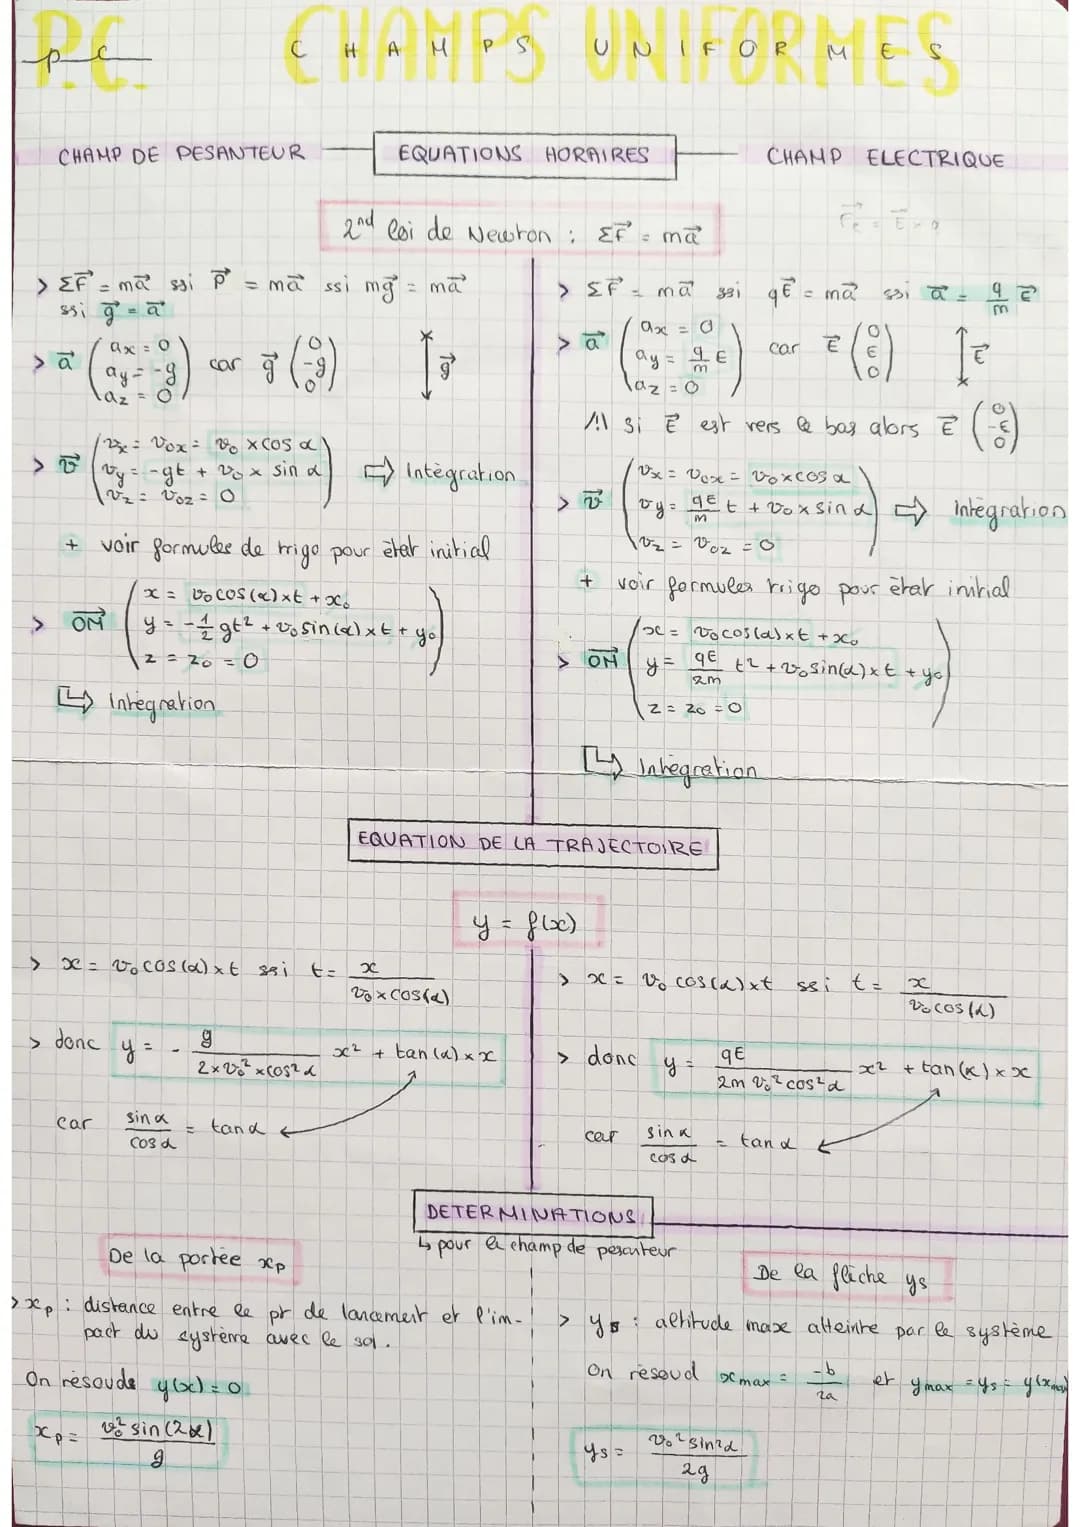 P.C. CHAMPS UNIFORMES
pc CHAMPS UNIFORMES
CHAMP DE PESANTEUR
EQUATIONS HORAIRES
CHAMP ELECTRIQUE
2nd loi de Newton : ΣF⃗ = ma⃗
F⃗e = E⃗ × q
> ΣF⃗ = ma⃗ ssi P⃗ = ma⃗ ssi mg⃗ = ma⃗
ssi g⃗ = a⃗
> a⃗ ( ax = 0
ay = -g
az = 0 ) car g⃗ ( 0
-g
0 ) g⃗
> v⃗ ( vx = v0x = v0 × cos α
vy = -gt + v0 × sin α
vz = v0z = 0 ) ⇨ Intégration
+ voir formules de trigo pour état initial
> OM⃗ ( x = v0 cos(α) × t + x0
y = -1/2 gt² + v0 sin(α) × t + y0
z = z0 = 0 )
↳ Intégration
> ΣF⃗ = ma⃗ ssi qE⃗ = ma⃗ ssi a⃗ = q/m E⃗
> a⃗ ( ax = 0
ay = q/m E
az = 0 ) car E⃗ ( 0
E
0 ) E⃗
/!\ si E⃗ est vers le bas alors E⃗ ( 0
-E
0 )
> v⃗ ( vx = v0x = v0 × cos α
vy = qE/m t + v0 × sin α
vz = v0z = 0 ) ⇨ Intégration
+ voir formules trigo pour état initial
> OM⃗ ( x = v0 cos(α) × t + x0
y = qE/2m t² + v0 sin(α) × t + y0
z = z0 = 0 )
↳ Intégration
EQUATION DE LA TRAJECTOIRE
y = f(x)
> x = v0 cos(α) × t ssi t = x / v0 × cos(α)
> donc y = - g / 2 × v0² × cos² α x² + tan(α) × x
car sin α / cos α = tan α
> x = v0 cos(α) × t ssi t = x / v0 cos(α)
> donc y = qE / 2m v0² cos² α x² + tan(α) × x
car sin α / cos α = tan α
DETERMINATIONS
↳ pour le champ de pesanteur
De la portée xp
> xp : distance entre le pt de lancement et l'im-
pact du système avec le sol.
On résouds y(x) = 0
xp = v0² sin(2α) / g
De la flèche ys
> ys : altitude maxe atteinte par le système
On résoud xmax = -b / 2a et ymax = ys = y(xmax)
ys = v0² sin² α / 2g